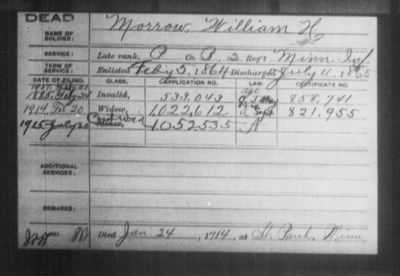 DEAD
NAME OF SOLDIER: Morrow, William H.
SERVICE: Late rank, P Co. 2 Reg't Minn Inf.
TERM OF SERVICE: Enlisted Feb'y 5, 1864 Discharged July 11, 1865
DATE OF FILING. CLASS. APPLICATION NO. LAW. CERTIFICATE NO.
1885, Invalid, 533,043 858,741
1914, 20 Widow, 1,022,612 2 Sept 821,955
1915 July 20 1,052,535
ADDITIONAL SERVICES:
REMARKS:
Died Jan 24, 1914, at St. Paul, Minn